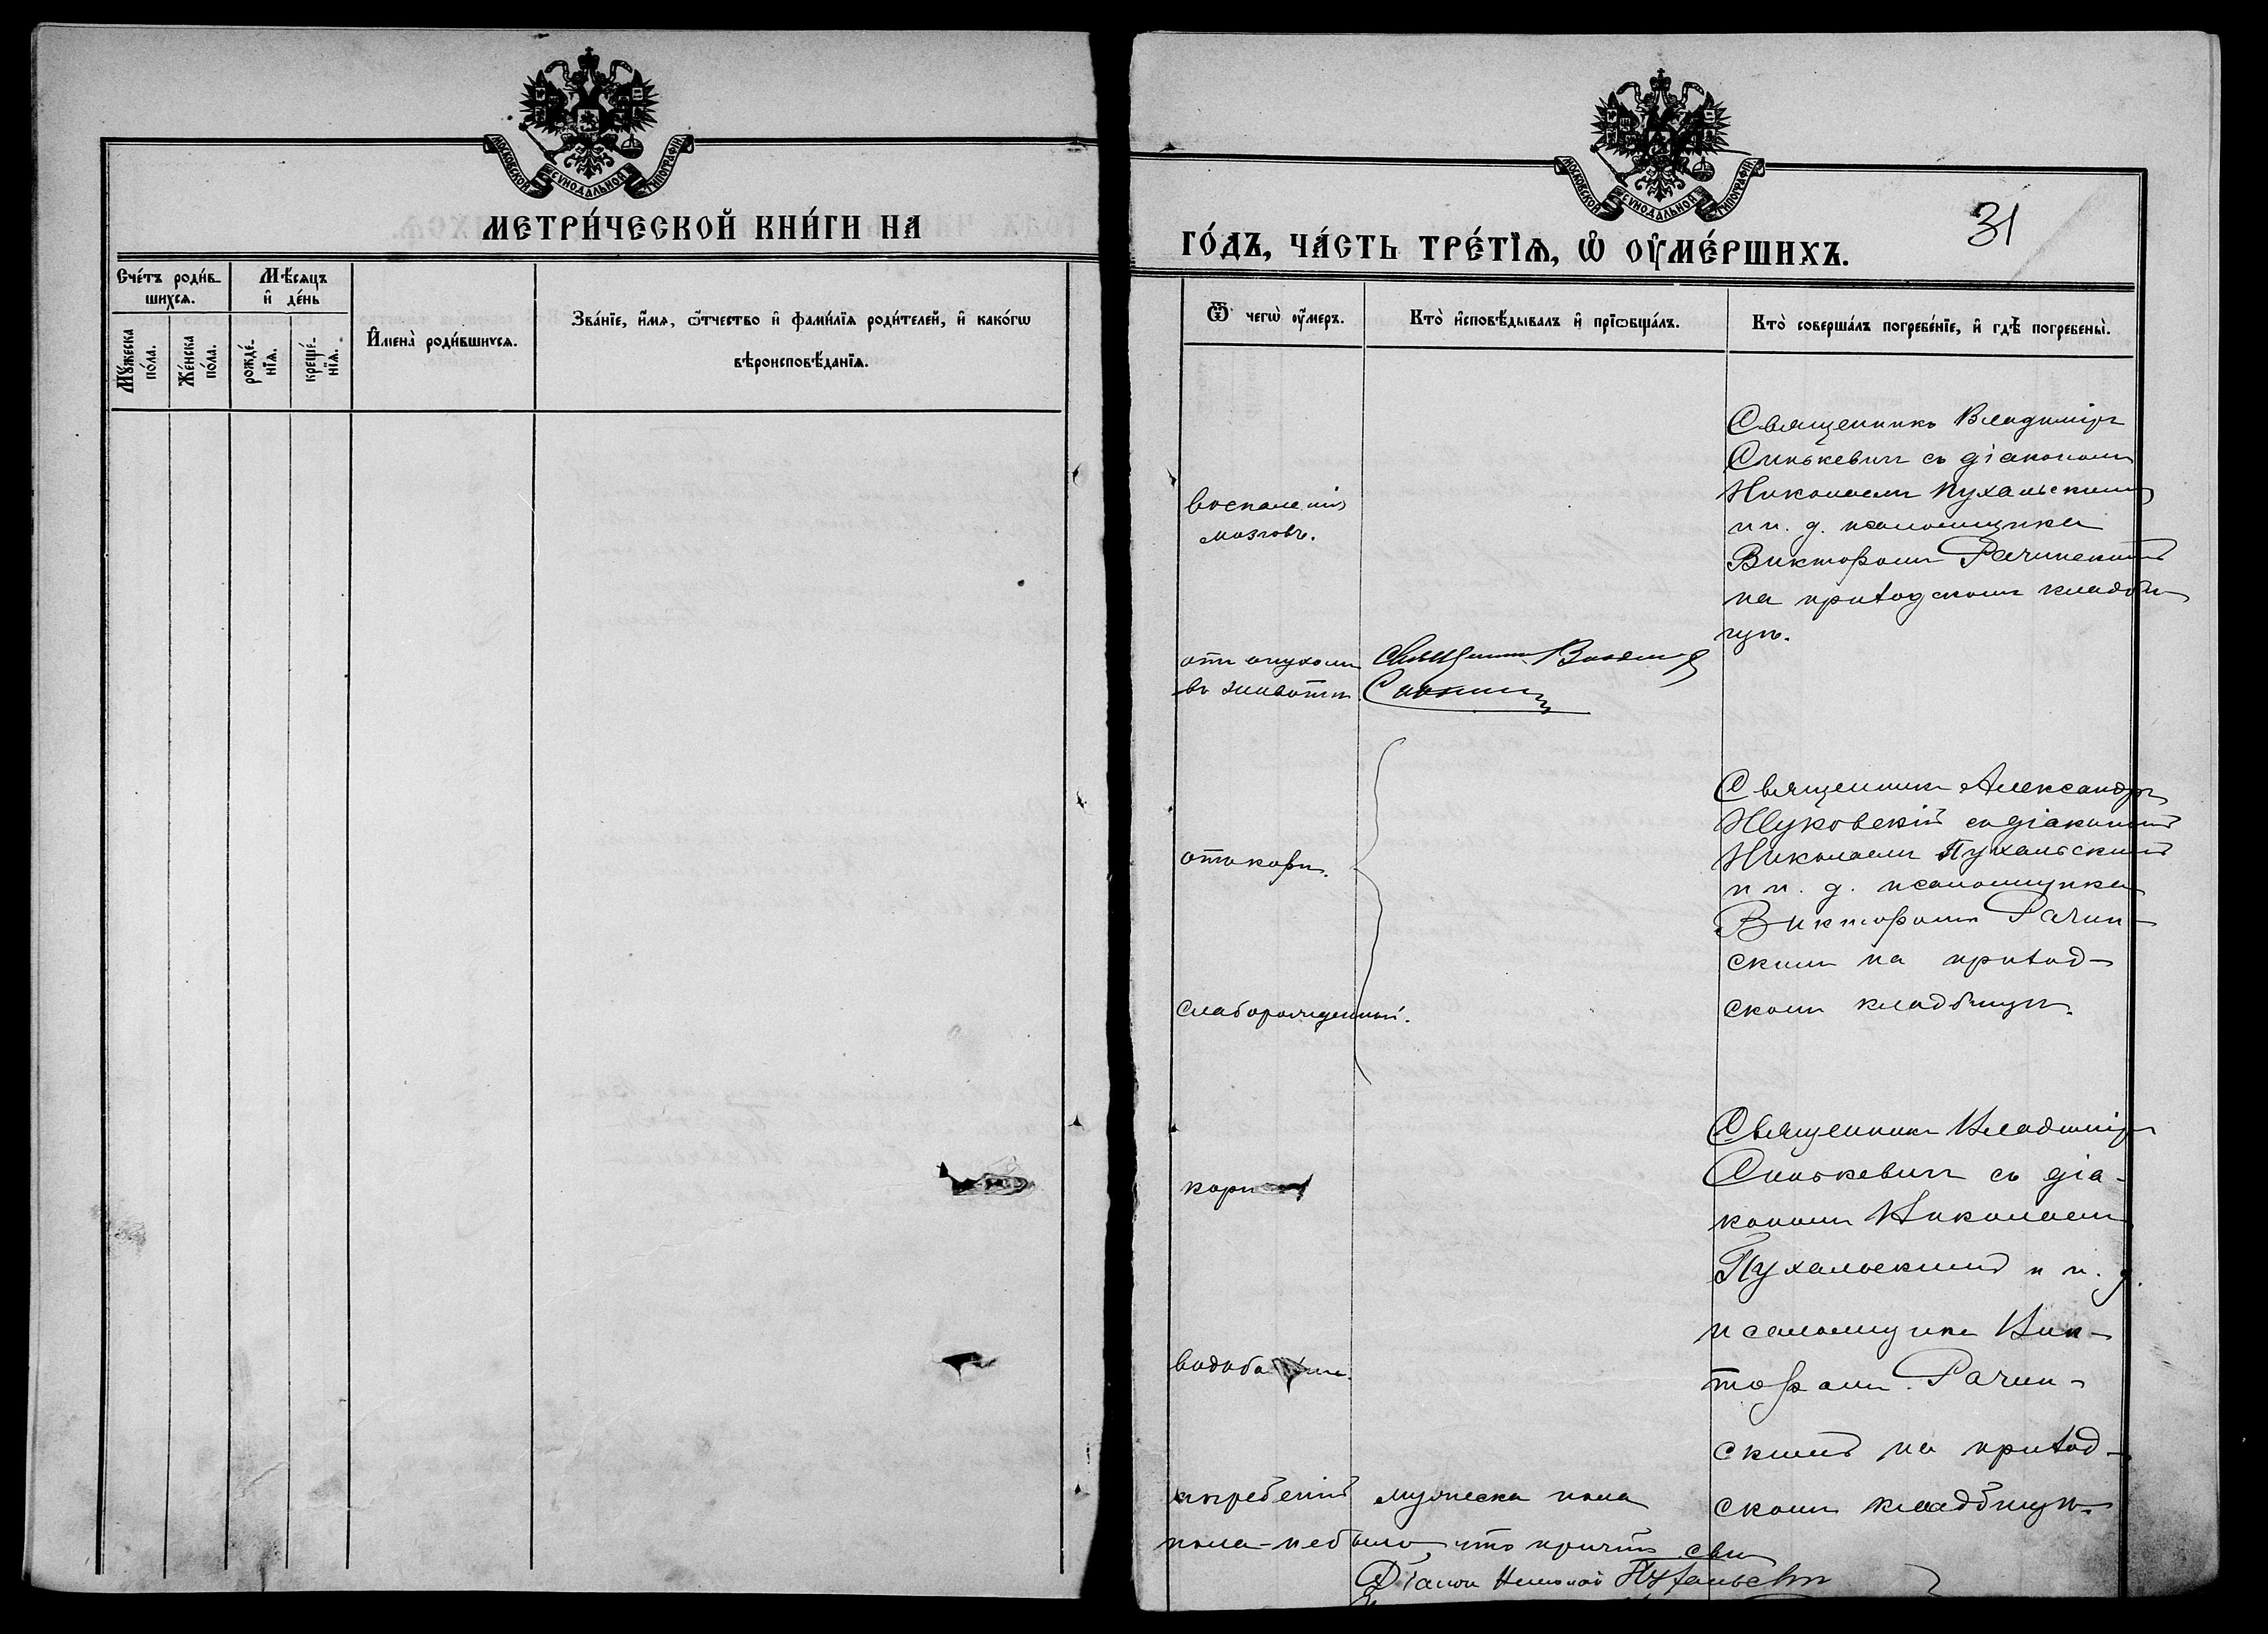 МОСКОВСКОЙ СѴНОДАЛЬНОЙ ТИПОГРАФІИ.
МЕТРИ́ЧЕСКОЙ КНИ́ГИ НА
Сче́тъ роди́в-
шихсѧ.
Мѣ́сѧцъ
и҆ де́нь
Мꙋ́жеска
по́ла.
Же́нска
по́ла.
рожде́-
нїѧ.
креще́-
нїѧ.
И҆мена̀ роди́вшихсѧ.
Зва́нїе, и҆́мѧ, ѻ҆́тчество и҆ фами́лїѧ роди́телей, и҆ како́гѡ
вѣроисповѣ́данїѧ.
МОСКОВСКОЙ СѴНОДАЛЬНОЙ ТИПОГРАФІИ.
31
ГО́ДЪ, ЧА́СТЬ ТРЕ́ТЇѦ, Ѡ҆ ОУ҆МЕ́РШИХЪ.
Ѿ чегѡ̀ ᲂу҆́меръ.
Кто̀ и҆сповѣ́дывалъ и҆ прїѡбща́лъ.
Кто̀ соверша́лъ погребе́нїе, и҆ гдѣ̀ погребены̀.
Священникъ Владиміръ
Синькевичъ съ діакономъ
Николаемъ Пухальскимъ
и и. д. псаломщика
Викторомъ Рачинскимъ
на приходскомъ кладби-
щѣ.
воспаленія
мозговъ.
отъ опухоли
въ животѣ
Священникъ
Священникъ Александръ
Жуковскій съ діакономъ
Николаемъ Пухальскимъ
и и. д. псаломщика
Викторомъ Рачин-
скимъ на приход-
скомъ кладбищѣ.
отъ кори.
слаборожденный.
Священникъ Владиміръ
Синькевичъ съ діа-
кономъ Николаемъ
Пухальскимъ и и. д.
псаломщика Вик-
торомъ Рачин-
скимъ на приход-
скомъ кладбищѣ.
кори
погребеній мужеска пола
пола не было, что причтъ
Діаконъ Николай Пухальскій